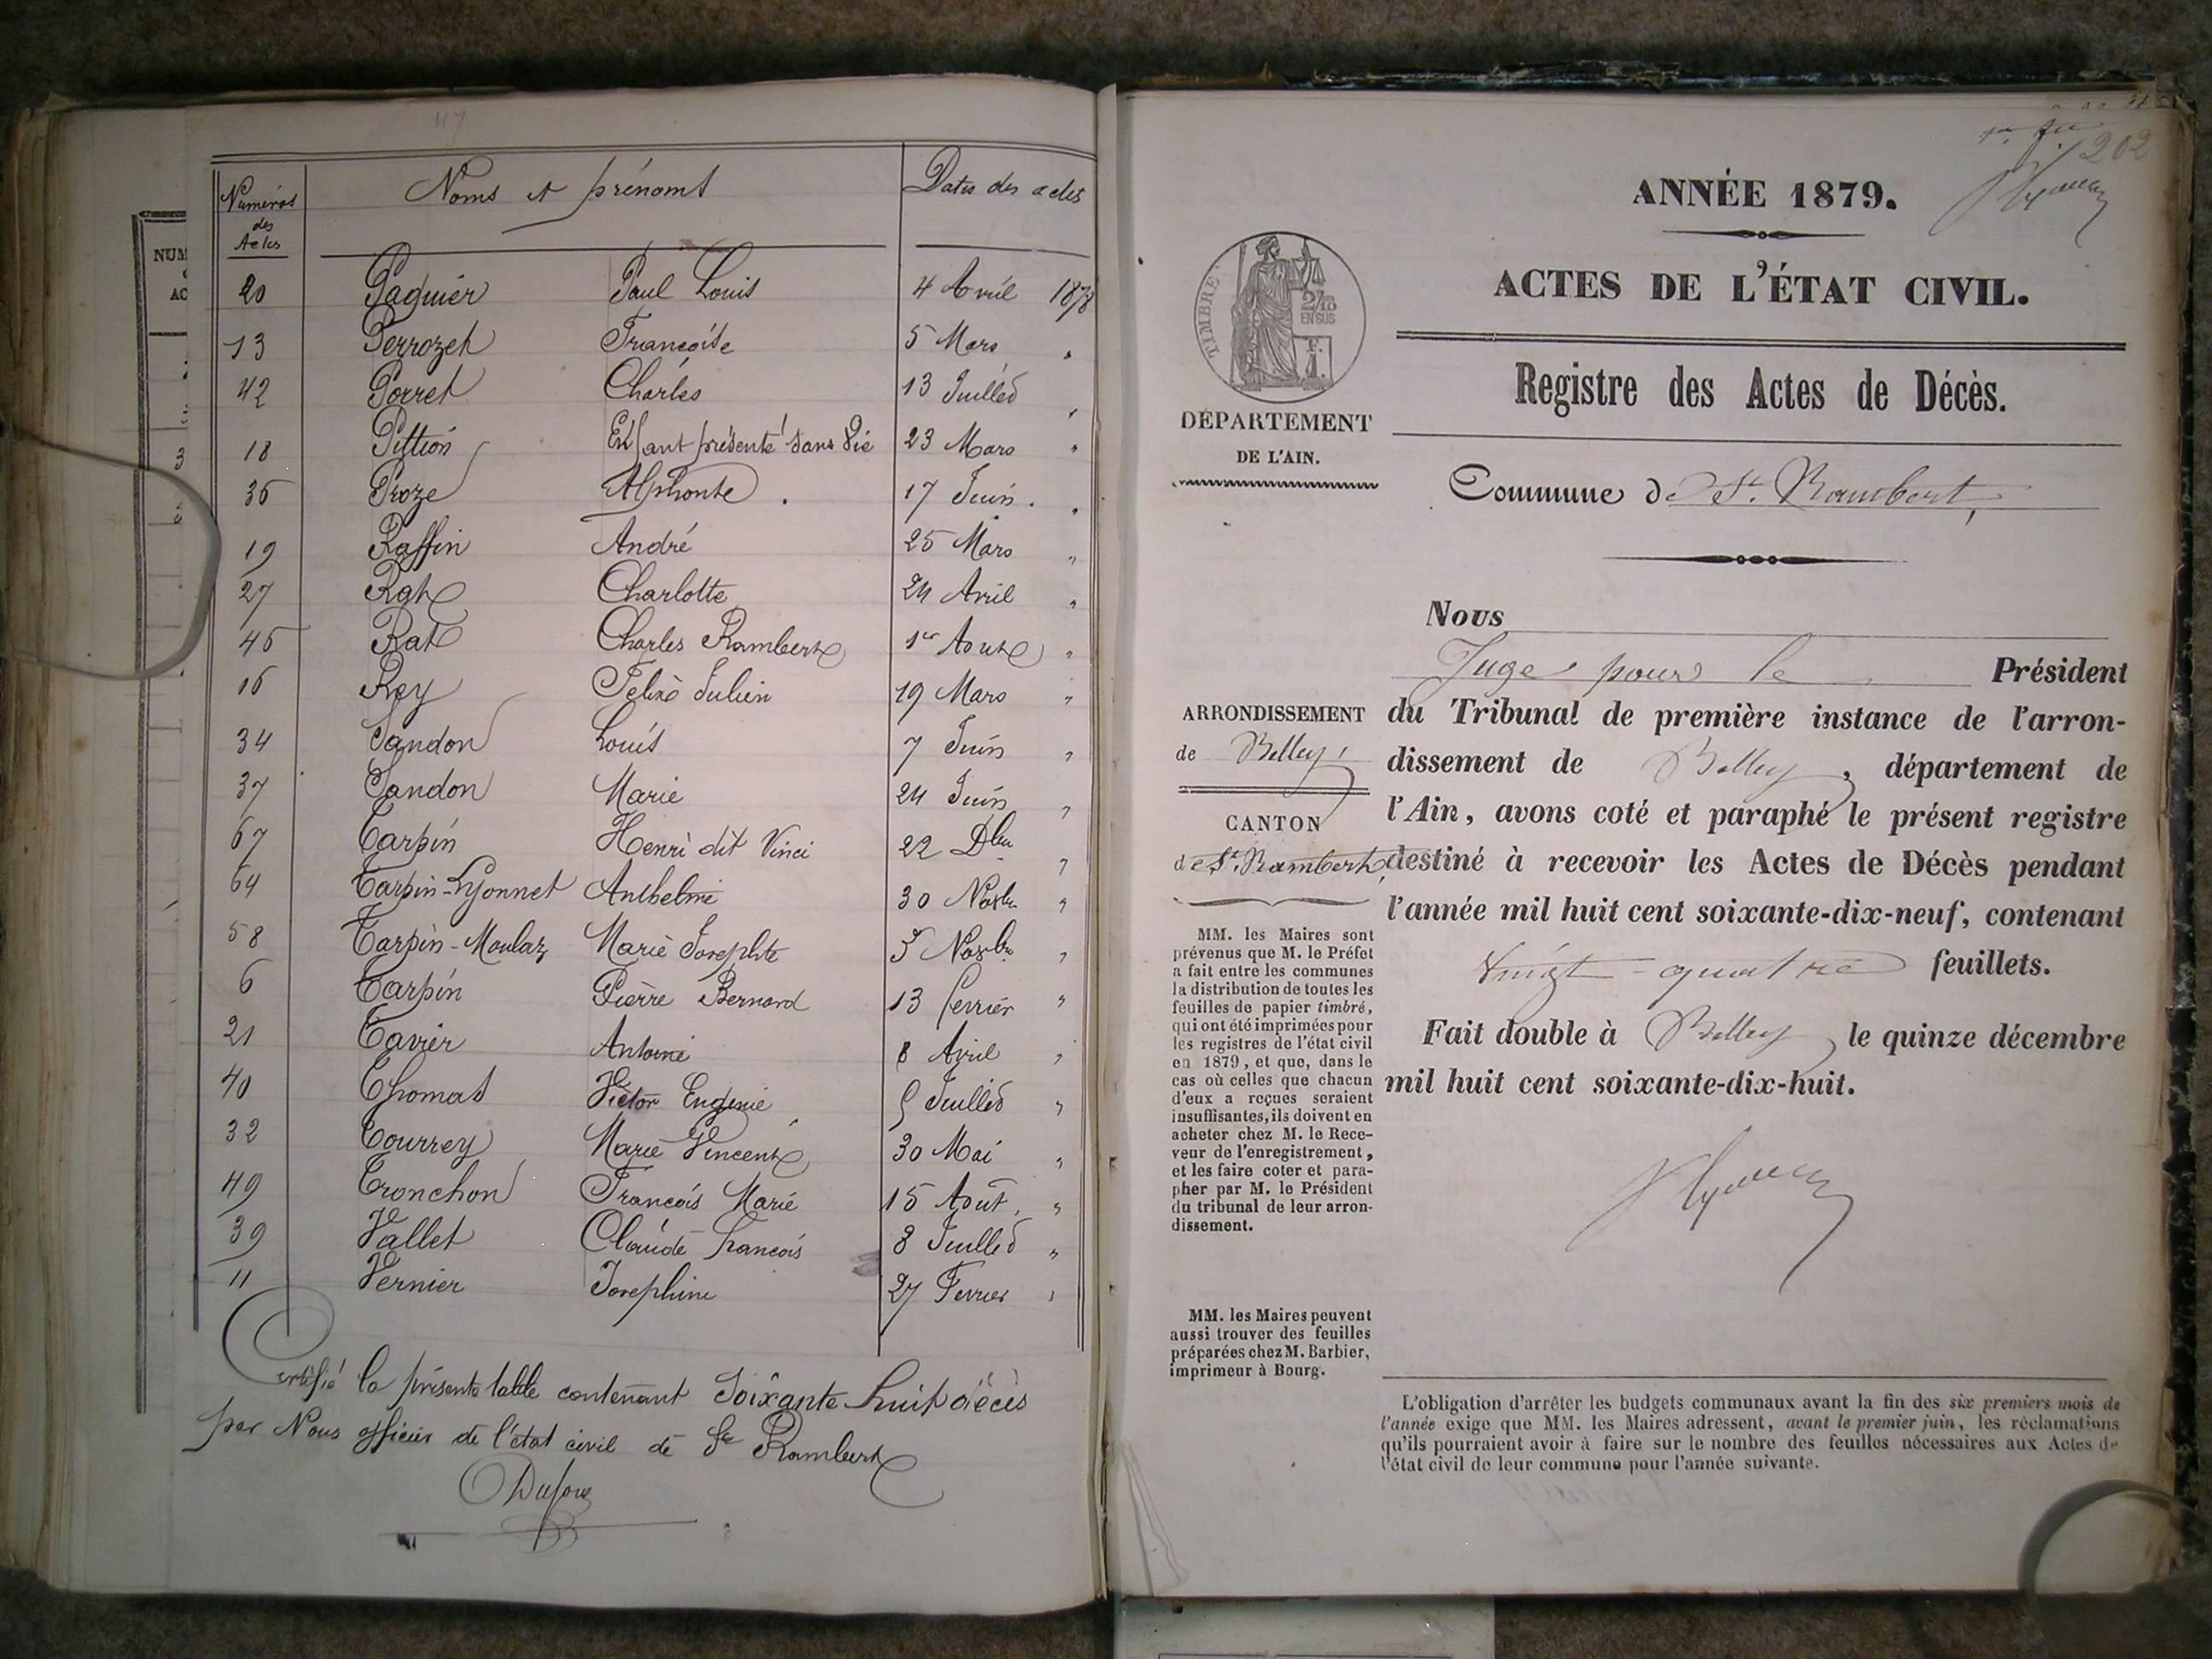 Numéros des Actes Noms et prénoms Dates des actes
20 Paguier Paul Louis 4 Avril 1878
13 Perrozet Françoise 5 Mars "
42 Porret Charles 13 Juillet "
18 Pittion Enfant présenté sans vie 23 Mars "
36 Proze Alphonse 17 Juin "
19 Raffin André 25 Mars "
27 Rat Charlotte 24 Avril "
46 Rat Charles Rambert 1er Aout "
16 Rey Felix Julien 19 Mars "
34 Sandon Louis 7 Juin "
37 Sandon Marie 24 Juin "
67 Tarpin Henri dit Vinci 22 Dbre "
64 Tarpin-Lyonnet Anthelme 30 Novbre "
58 Tarpin-Moulaz Marie Josephte 5 Novbre "
6 Tarpin Pierre Bernard 13 fevrier "
21 Tavier Antoine 8 Avril "
40 Thomas Victor Eugenie 9 Juillet "
32 Tourrey Marie Vincent 30 Mai "
49 Tronchon François Marie 15 Août "
39 Vallet Claude françois 8 Juillet "
11 Vernier Josephine 27 Fevrier "
Certifié la présente table contenant Soixante huit décès
par Nous officier de l'état civil de St Rambert
Dufour
NUM
AC
202
ANNÉE 1879.
ACTES DE L'ÉTAT CIVIL.
TIMBRE
2/10
EN SUS
DÉPARTEMENT
DE L'AIN.
Registre des Actes de Décès.
Commune de St. Rambert,
Nous
Juge pour le Président
du Tribunal de première instance de l'arron-
dissement de Belley, département de
l'Ain, avons coté et paraphé le présent registre
destiné à recevoir les Actes de Décès pendant
l'année mil huit cent soixante-dix-neuf, contenant
vingt-quatre feuillets.
Fait double à Belley, le quinze décembre
mil huit cent soixante-dix-huit.
ARRONDISSEMENT
de Belley,
CANTON
de St. Rambert,
MM. les Maires sont
prévenus que M. le Préfet
a fait entre les communes
la distribution de toutes les
feuilles de papier timbré,
qui ont été imprimées pour
les registres de l'état civil
en 1879, et que, dans le
cas où celles que chacun
d'eux a reçues seraient
insuffisantes, ils doivent en
acheter chez M. le Rece-
veur de l'enregistrement,
et les faire coter et para-
pher par M. le Président
du tribunal de leur arron-
dissement.
MM. les Maires peuvent
aussi trouver des feuilles
préparées chez M. Barbier,
imprimeur à Bourg.
L'obligation d'arrêter les budgets communaux avant la fin des six premiers mois de
l'année exige que MM. les Maires adressent, avant le premier juin, les réclamations
qu'ils pourraient avoir à faire sur le nombre des feuilles nécessaires aux Actes de
l'état civil de leur commune pour l'année suivante.